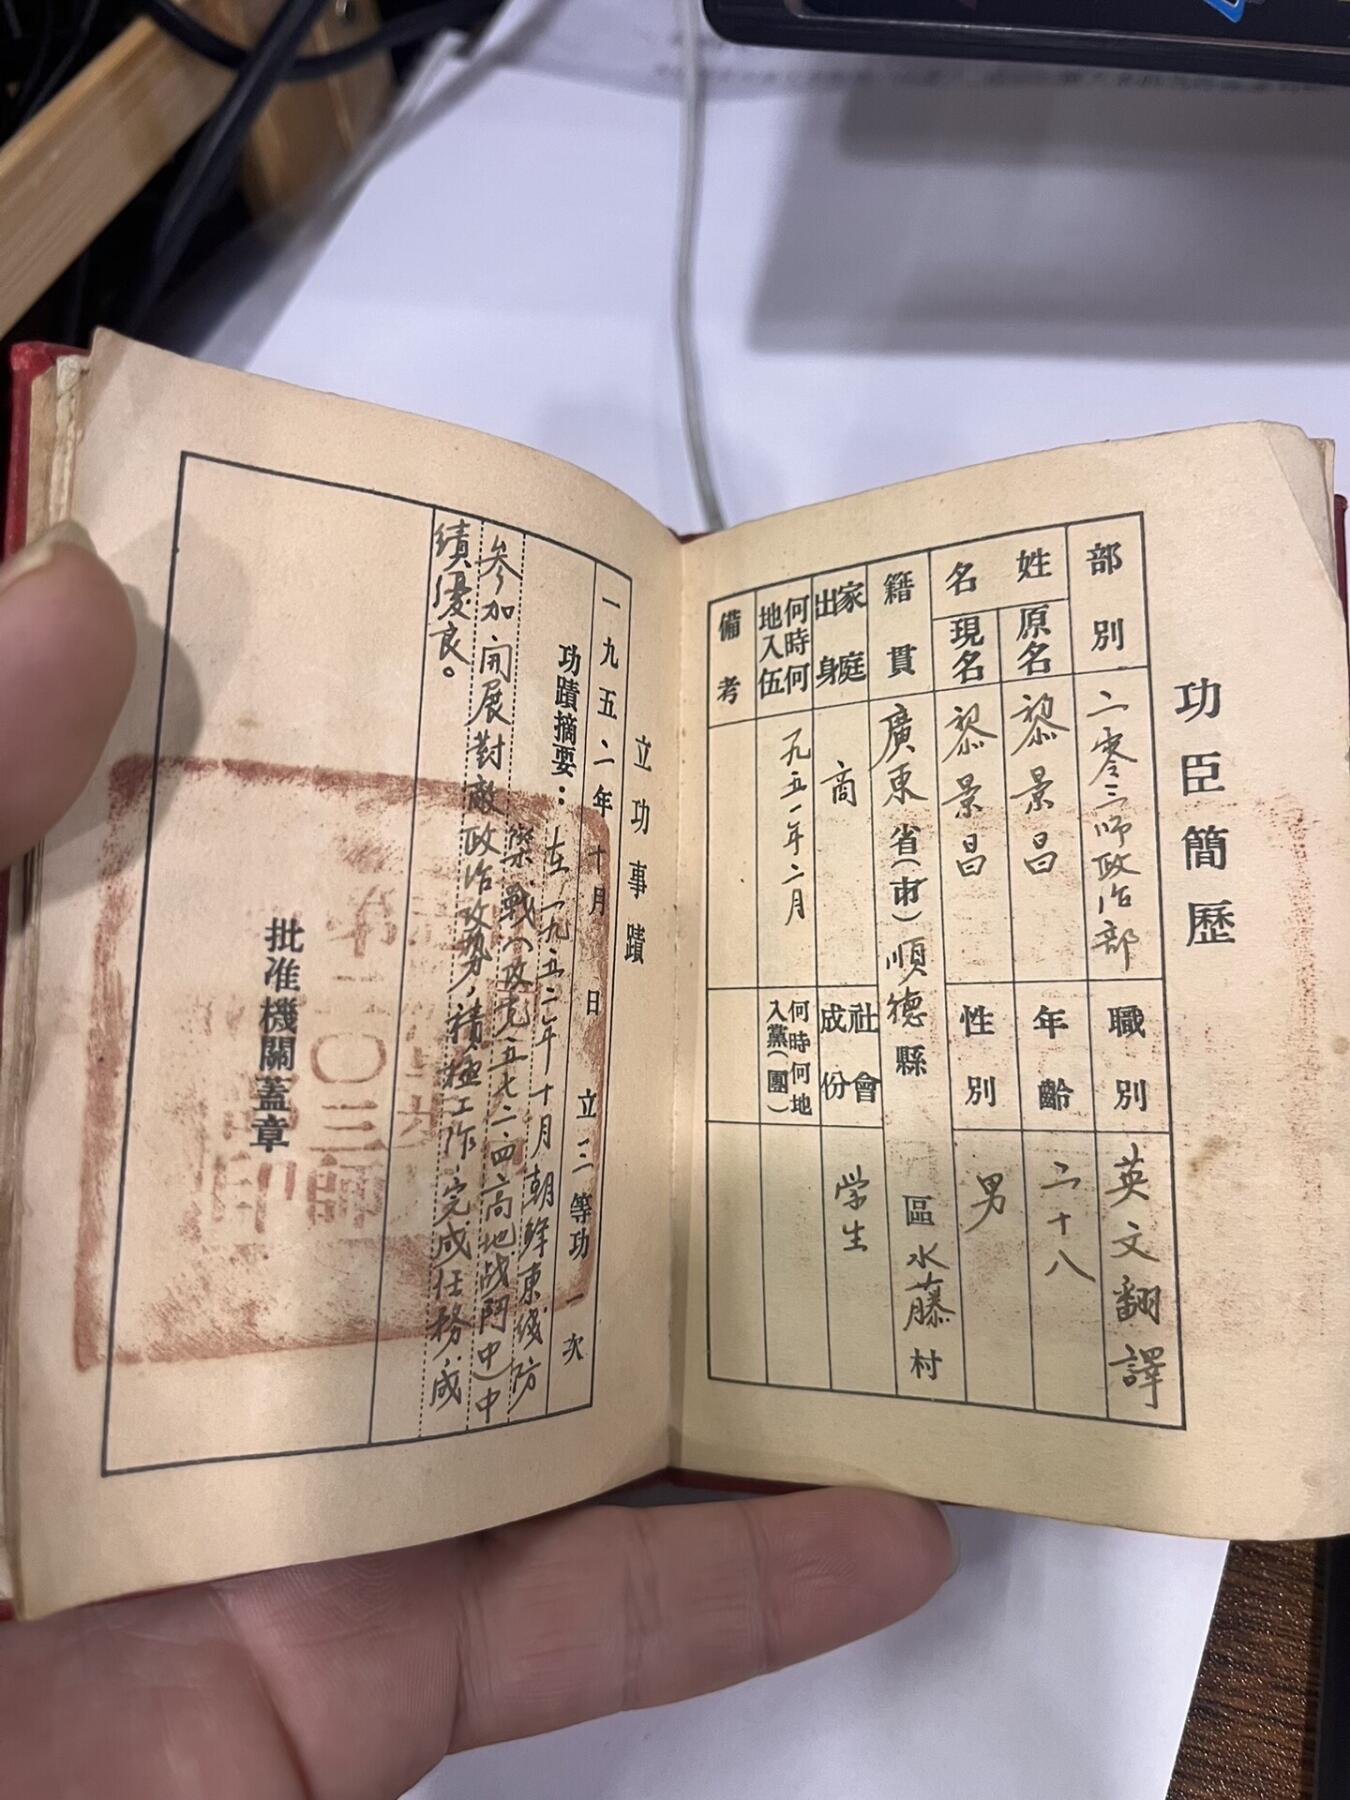 功臣簡歷
部別 二零三师政治部 職別 英文翻譯
姓名 原名 黎景昌 年齡 二十八
現名 黎景昌 性別 男
籍貫 廣東省(市)順德縣 區水藤村
家庭出身 商 社會成份 学生
何時何地入伍 一九五一年二月 何時何地入黨(團)
備考
立功事蹟
一九五二年十月 日 立三等功一次
功蹟摘要：在一九五二年十月朝鲜東线防
禦战(攻克五七二·四高地战鬥中)中
参加開展對敵政治攻势，積極工作完成任務成
績優良。
批准機關蓋章
二〇三師